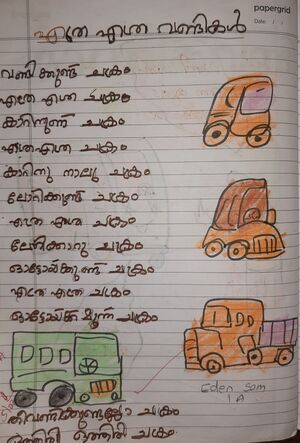 papergrid
Date / /
എത്ര എത്ര വണ്ടികൾ
വണ്ടിക്കുണ്ട് ചക്രം
എത്ര എത്ര ചക്രം
കാറിനുണ്ട് ചക്രം
എത്ര എത്ര ചക്രം
കാറിനു നാലു ചക്രം
ലോറിക്കുണ്ട് ചക്രം
എത്ര എത്ര ചക്രം
ചക്രം
ഓട്ടോയ്ക്കുണ്ട് ചക്രം
എത്ര എത്ര ചക്രം
ഓട്ടോയ്ക്ക് മൂന്ന് ചക്രം
Eden Sam
1 A
ചക്രം
ഒത്തിരി ഒത്തിരി ചക്രം